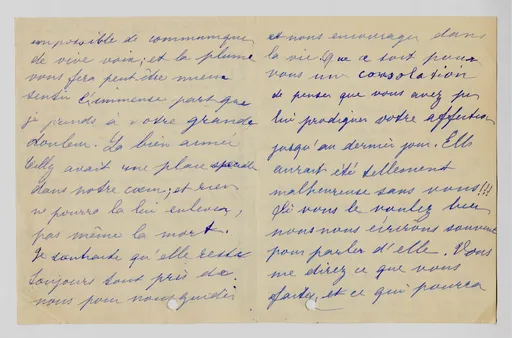 impossible de communiquer
de vive voix; et la plume
vous fera peut être mieux
sentir l'immense part que
je prends à votre grande
douleur. La bien aimée
Lilly avait une place spéciale
dans notre cœur, et rien
ne pourra la lui enlever,
pas même la mort.
Je souhaite qu'elle reste
toujours tout près de
nous pour nous guider
et nous encourager dans
la vie. Que ce soit pour
vous un consolation
de penser que vous avez pu
lui prodiguer votre affection
jusqu'au dernier jour. Elle
aurait été tellement
malheureuse sans vous!!!
Si vous le voulez bien
nous nous écrirons souvent
pour parler d'elle. Vous
me direz ce que vous
faites, et ce qui pourra